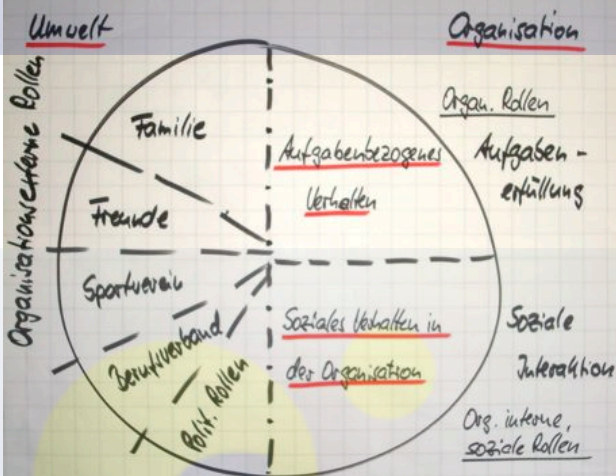 Umwelt
Organisation
Organisationsexterne Rollen
Familie
Freunde
Sportverein
Berufsverband
Polit. Rollen
Aufgabenbezogenes
Verhalten
Soziales Verhalten in
der Organisation
Organ. Rollen
Aufgaben-
erfüllung
Soziale
Interaktion
Org. interne,
soziale Rollen